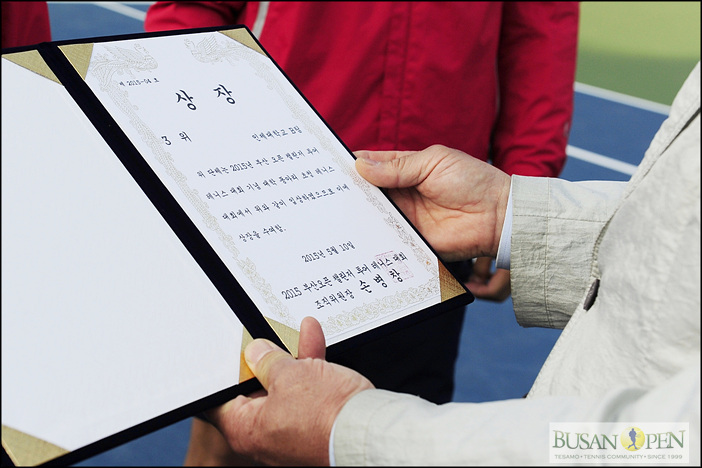 제 2015-04 호
상 장
3 위
인제대학교 B팀
위 단체는 2015년 부산 오픈 챌린저 투어
테니스 대회 기념 대학 동아리 초청 테니스
대회에서 위와 같이 입상하였으므로 이에
상장을 수여함.
2015년 5월 10일
2015 부산오픈 챌린저 투어 테니스 대회
조직위원장 손 병 창
BUSAN OPEN
TESAMO • TENNIS COMMUNITY • SINCE 1999